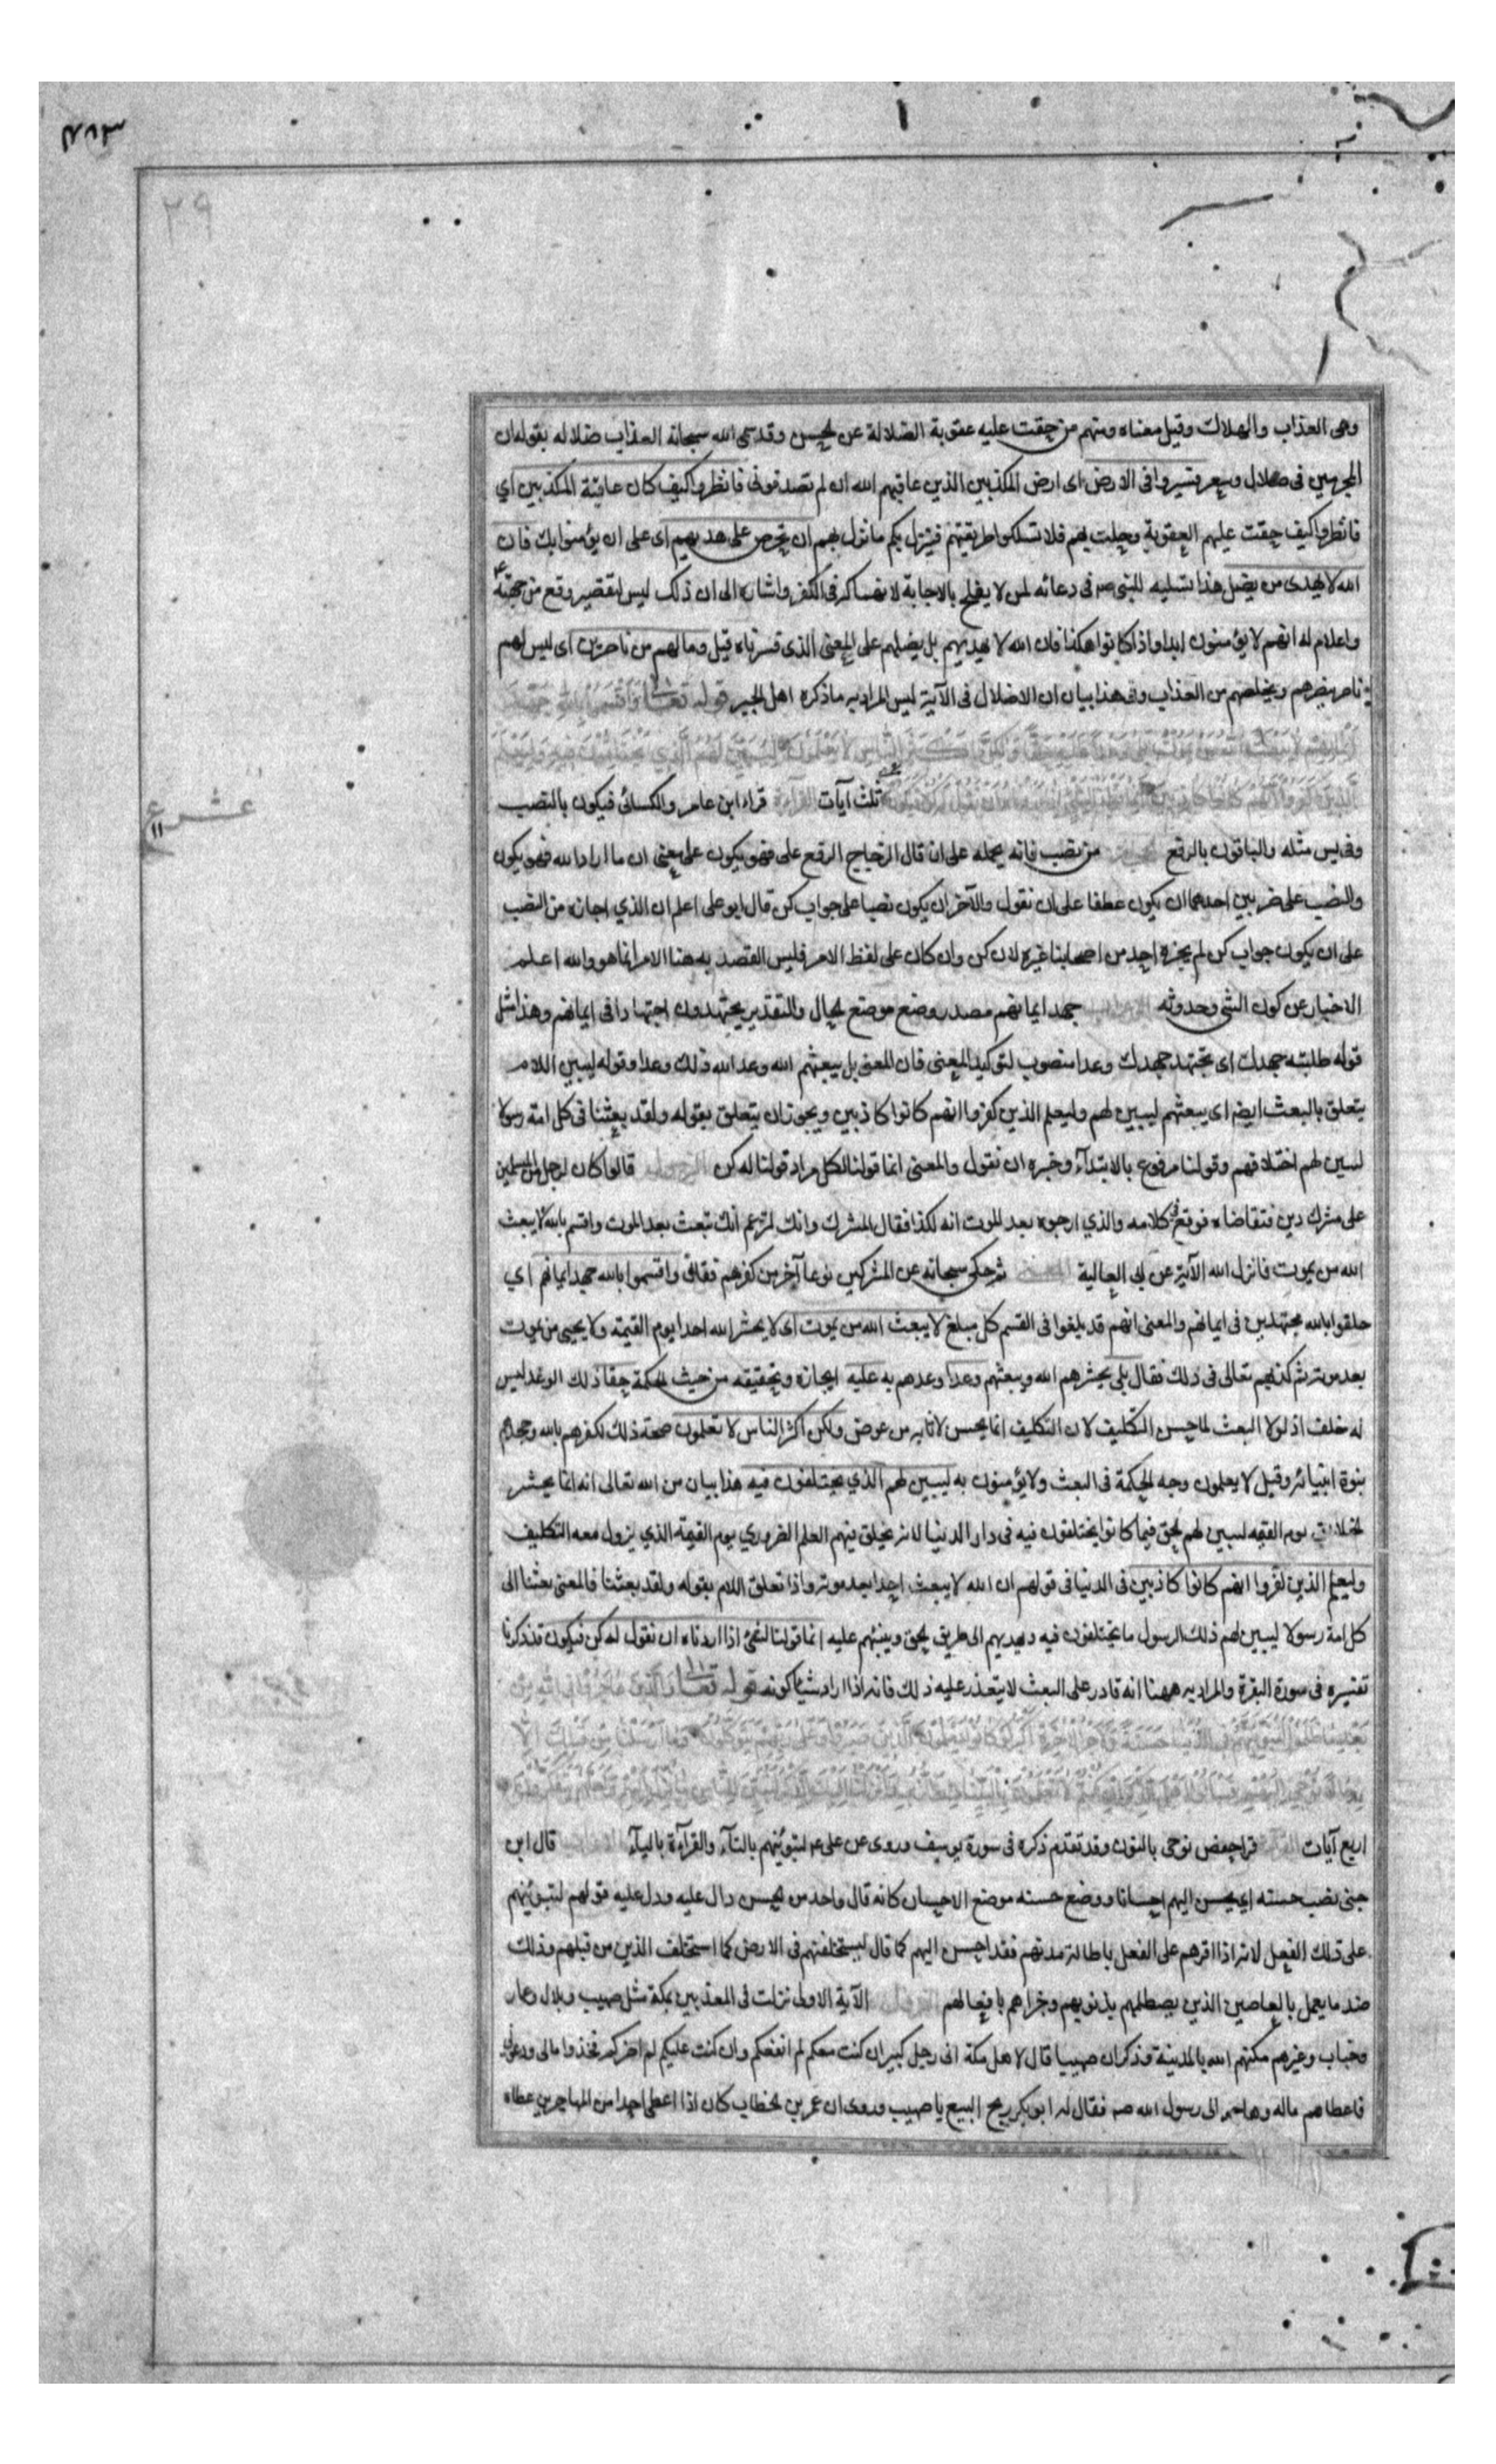 ٢٩
وهى العذاب والهلاك وقيل معناه ومنهم من حقت عليه عقوبة الضلالة عن الحسن وقد سمى الله سبحانه العذاب ضلالا له بقوله ان
المجرمين فى ضلال وسعر فسيروا فى الارض اى ارض المكذبين الذين عاقبهم الله ان لم تصدقونى فانظروا كيف كان عاقبة المكذبين اي
فانظروا كيف حقت عليهم العقوبة وحلت بهم فلا تسلكوا طريقتهم فينزل بكم ما نزل بهم ان تحرص على هديهم اى على ان يؤمنوا بك فان
الله لا يهدى من يضل هذا تسليه للنبى صه فى دعائه لمن لا يفلح بالاجابة لانهماكه فى الكفر واشارة الى ان ذلك ليس لتقصير وقع من جهته
واعلام له انهم لا يؤمنون ابدا واذا كانوا هكذا فان الله لا يهديهم بل يضلهم على المعنى الذى فسرناه قبل ومالهم من ناصرين اى ليس لهم
ناصر ينصرهم ويخلصهم من العذاب وفى هذا بيان ان الاضلال فى الآية ليس المراد به ما ذكره اهل الجبر قوله تعالى واقسموا بالله جهد
ايمانهم لا يبعث الله من يموت بلى وعدا عليه حقا ولكن اكثر الناس لا يعلمون ليبين لهم الذي يختلفون فيه وليعلم
الذين كفروا انهم كانوا كاذبين ثلث آيات القرآءة قراء ابن عامر والكسائى فيكون بالنصب
وفى يس مثله والباقون بالرفع من نصب فانه يحمله على ان قال الزجاج الرفع على فهو يكون على معنى ان ما اراد الله فهو يكون
والنصب على ضربين احدهما ان يكون عطفا على ان نقول والآخر ان يكون نصبا على جواب كن قال ابو على اعلم ان الذي اجازه من النصب
على ان يكون جواب كن لم يجزه احد من اصحابنا غيره لان كن وان كان على لفظ الامر فليس القصد به هنا الامر انما هو والله اعلم
الاخبار عن كون الشى وحدوثه جهد ايمانهم مصدر وضع موضع الحال والتقدير يجتهدون اجتهادا فى ايمانهم وهذا مثل
قوله طلبته جهدك اى تجتهد جهدك وعدا منصوب لتوكيد المعنى فان المعنى بل يبعثهم الله وعد الله ذلك وعدا وقوله ليبين اللام
يتعلق بالبعث ايضا اى يبعثهم ليبين لهم وليعلم الذين كفروا انهم كانوا كاذبين ويجوز ان يتعلق بقوله ولقد بعثنا فى كل امة رسولا
ليبين لهم اختلافهم وقولنا مرفوع بالابتدآء وخبره ان نقول والمعنى انما قولنا لكل مراد قولنا له كن النزول قالوا كان لرجل من المسلمين
على مشرك دين فتقاضاه فوقع فى كلامه والذي ارجوه بعد الموت انه لكذا فقال المشرك وانك لتزعم انك تبعث بعد الموت واقسم بالله لا يبعث
الله من يموت فانزل الله الآية عن ابى العالية المعنى ثم حكى سبحانه عن المشركين نوعا آخر من كفرهم فقال واقسموا بالله جهد ايمانهم اي
حلفوا بالله مجتهدين فى ايمانهم والمعنى انهم قد بلغوا فى القسم كل مبلغ لا يبعث الله من يموت اى لا يحشر الله احدا يوم القيمة ولا يحيى من يموت
بعد موته ثم كذبهم تعالى فى ذلك فقال بلى يحشرهم الله ويبعثهم وعدا وعدهم به عليه ايجازه وتحقيقه من حيث الحكمة حقا ذلك الوعد ليس
له خلف اذ لولا البعث لما حسن التكليف لان التكليف انما يحسن لاثابه من عوض ولكن اكثر الناس لا يعلمون صحة ذلك لكفرهم بالله وجحدهم
بنوة انبيائه وقيل لا يعلمون وجه الحكمة فى البعث ولا يؤمنون به ليبين لهم الذي يختلفون فيه هذا بيان من الله تعالى انه انما يحشر
الخلائق يوم القيمه ليبين لهم الحق فيما كانوا يختلفون فيه فى دار الدنيا لانه يخلق فيهم العلم الضروري يوم القيمة الذي يزول معه التكليف
وليعلم الذين كفروا انهم كانوا كاذبين فى الدنيا فى قولهم ان الله لا يبعث احدا بعد موته واذا تعلق اللام بقوله ولقد بعثنا فالمعنى بعثنا الى
كل امة رسولا ليبين لهم ذلك الرسول ما يختلفون فيه ويهديهم الى طريق الحق وينبههم عليه انما قولنا لشئ اذا اردناه ان نقول له كن فيكون قد ذكرنا
تفسيره فى سورة البقرة والمراد به ههنا انه قادر على البعث لا يتعذر عليه ذلك فانه اذا اراد شيئا كونه قوله تعالى والذين هاجروا فى الله من
بعد ما ظلموا لنبوئنهم فى الدنيا حسنة ولاجر الاخرة اكبر لو كانوا يعلمون الذين صبروا وعلى ربهم يتوكلون وما ارسلنا من قبلك الا
رجالا نوحى اليهم فسئلوا اهل الذكر ان كنتم لا تعلمون بالبينات والزبر وانزلنا اليك الذكر لتبين للناس ما نزل اليهم ولعلهم يتفكرون
اربع آيات قرا حفص نوحى بالنون وقد تقدم ذكره فى سورة يوسف وروى عن على عه لنبوئنهم بالثآء والقرآءة بالبآء قال ابن
جنى نصب حسنه اي يحسن اليهم احسانا ووضع حسنه موضع الاحسان كانه قال واحد من الحسن دال عليه ودل عليه قولهم لنبوئنهم
على ذلك الفعل لانه اذا اقرهم على الفعل باطالة مدتهم فقد احسن اليهم كما قال ليستخلفنهم فى الارض كما استخلف الذين من قبلهم وذلك
ضد ما يعمل بالعاصين الذين يصطلمهم بذنوبهم وجزاهم بافعالهم النزول الآية الاولى نزلت فى المعذبين بمكة مثل صهيب وبلال وعمار
وخباب وغيرهم مكنهم الله بالمدينة وذكر ان صهيبا قال لاهل مكة انى رجل كبير ان كنت معكم لم انفعكم وان كنت عليكم لم اضركم فخذوا مالى ودعونى
فاعطاهم ماله وهاجر الى رسول الله صه فقال له ابو بكر ربح البيع يا صهيب وروى ان عمر بن الخطاب كان اذا اعطى احدا من المهاجرين عطاه